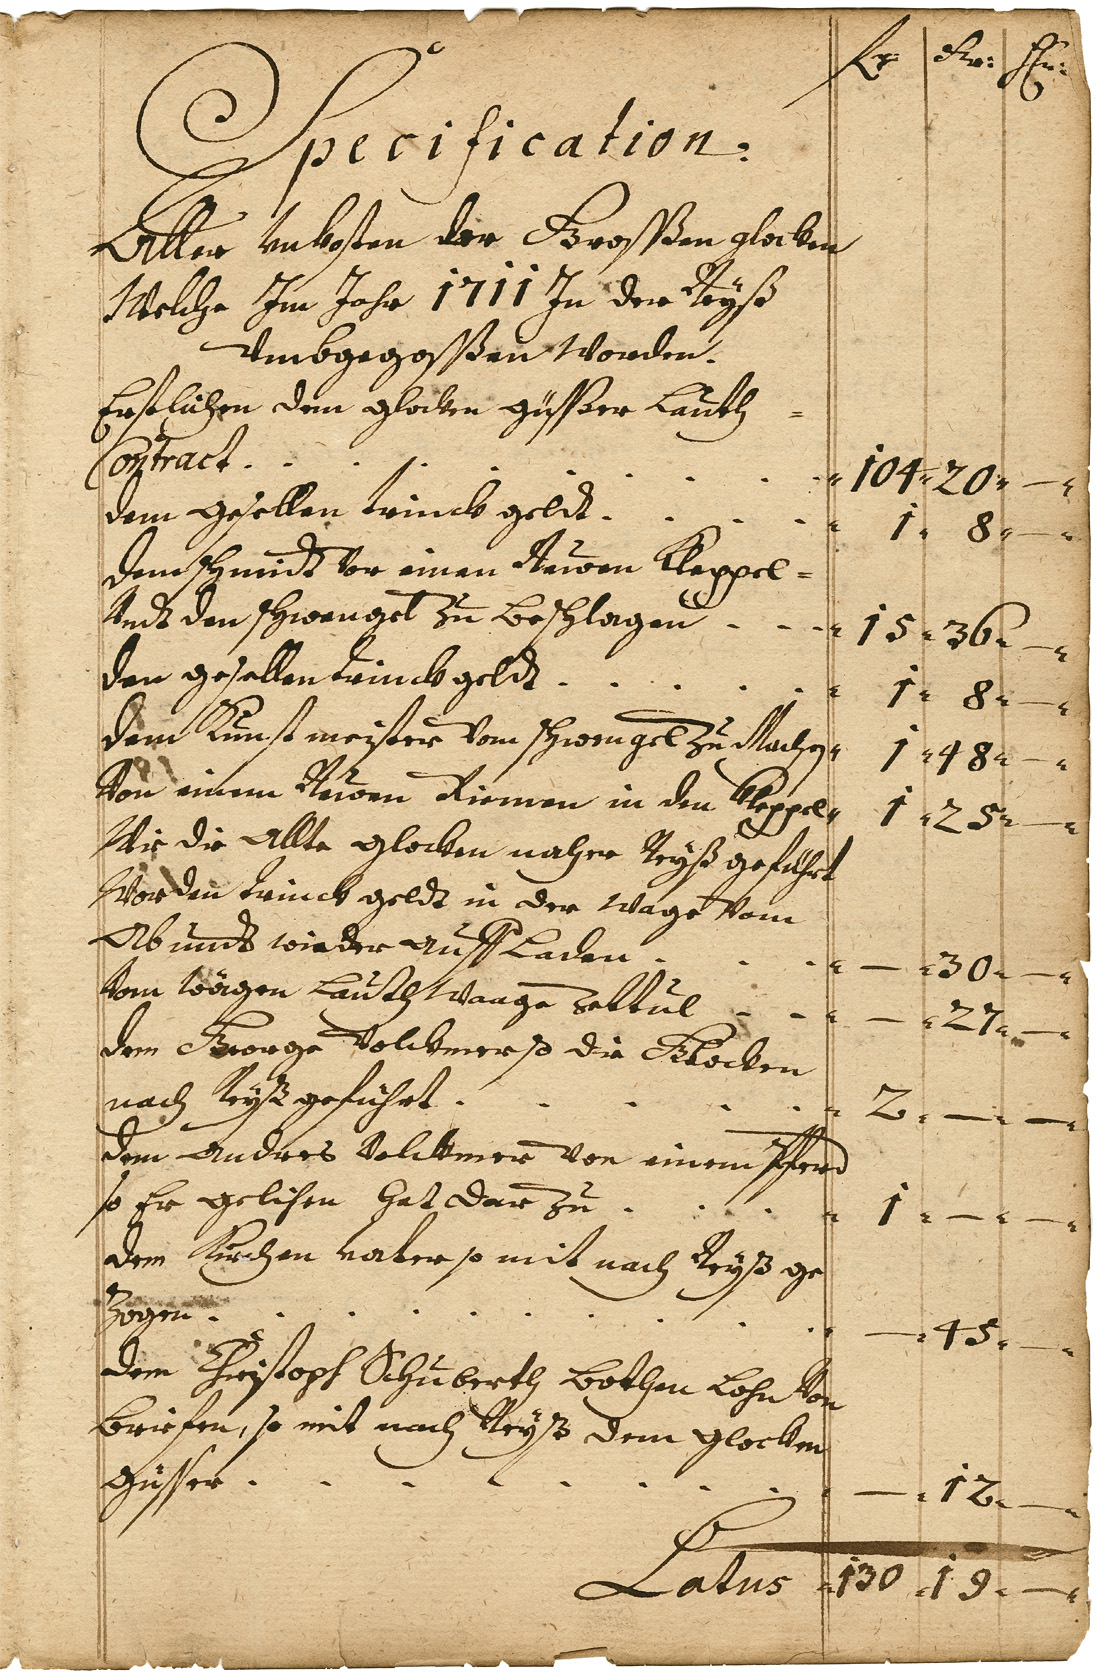 fl: Kr: hl:
Specification:
Aller Unkosten der Grossßen glocken
Welche Im Jahr 1711 In der Neyß
Umbgegosßen Worden.
Erstlichen dem glocken güsßer Lauth =
Contract. . . . . . . . " 104 " 20 " — "
dem gesellen trinck geldt. . . . . " 1 " 8 " — "
dem schmidt Vor einen Neuen Kleppel =
Undt den schwengel Zu beschlagen . . . " 15 " 36 " — "
den gesellen trinck geldt . . . . . " 1 " 8 " — "
dem Kunst meister Vom schwengel Zu Machen " 1 " 48 " — "
Von einem Neuen Riemen in den Kleppel " 1 " 25 " — "
Wie die Alte glocken nacher Neyß geführt
Worden trinck geldt in der Wage Vom
Ab undt wieder auff Laden . . . " — " 30 " — "
Vom wägen Lauth Waage Zettul . . " — " 27 " — "
dem George Volckmer so die Glocken
nach Neyß geführt . . . . . " 2 " — " — "
dem Andres Volckmer Von einem Pferd
so Er gelihen hat dar Zu . . . . " 1 " — " — "
dem Kirchen vater so mit nach Neyß ge
Zogen . . . . . . . . . " — " 45 " — "
dem Christoph Schuberth bothen Lohn Von
briefen, so mit nach Neyß dem glocken
güsser . . . . . . . . . " — " 12 " — "
Latus " 130 " 19 " — "